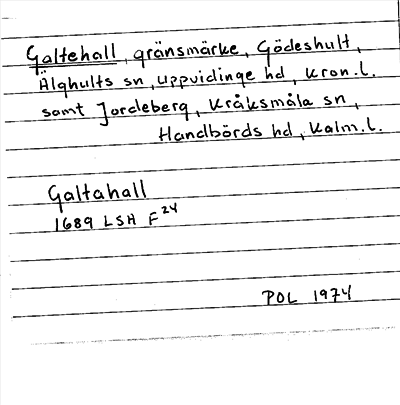 Galtehall, gränsmärke, Gödeshult,
Älghults sn, Uppvidinge hd, Kron.l.
samt Jordeberg, Kråksmåla sn,
Handbörds hd, Kalm.l.
Galtahall
1689 LSH F24
POL 1974